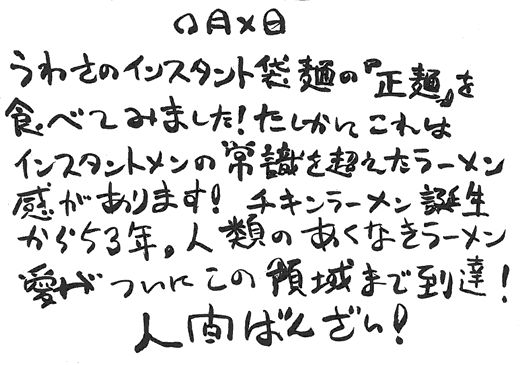 ○月×日
うわさのインスタント袋麺の『正麺』を
食べてみました!たしかにこれは
インスタントメンの常識を超えたラーメン
感があります! チキンラーメン誕生
から53年。人類のあくなきラーメン
愛がついにこの領域まで到達!
人間ばんざい!